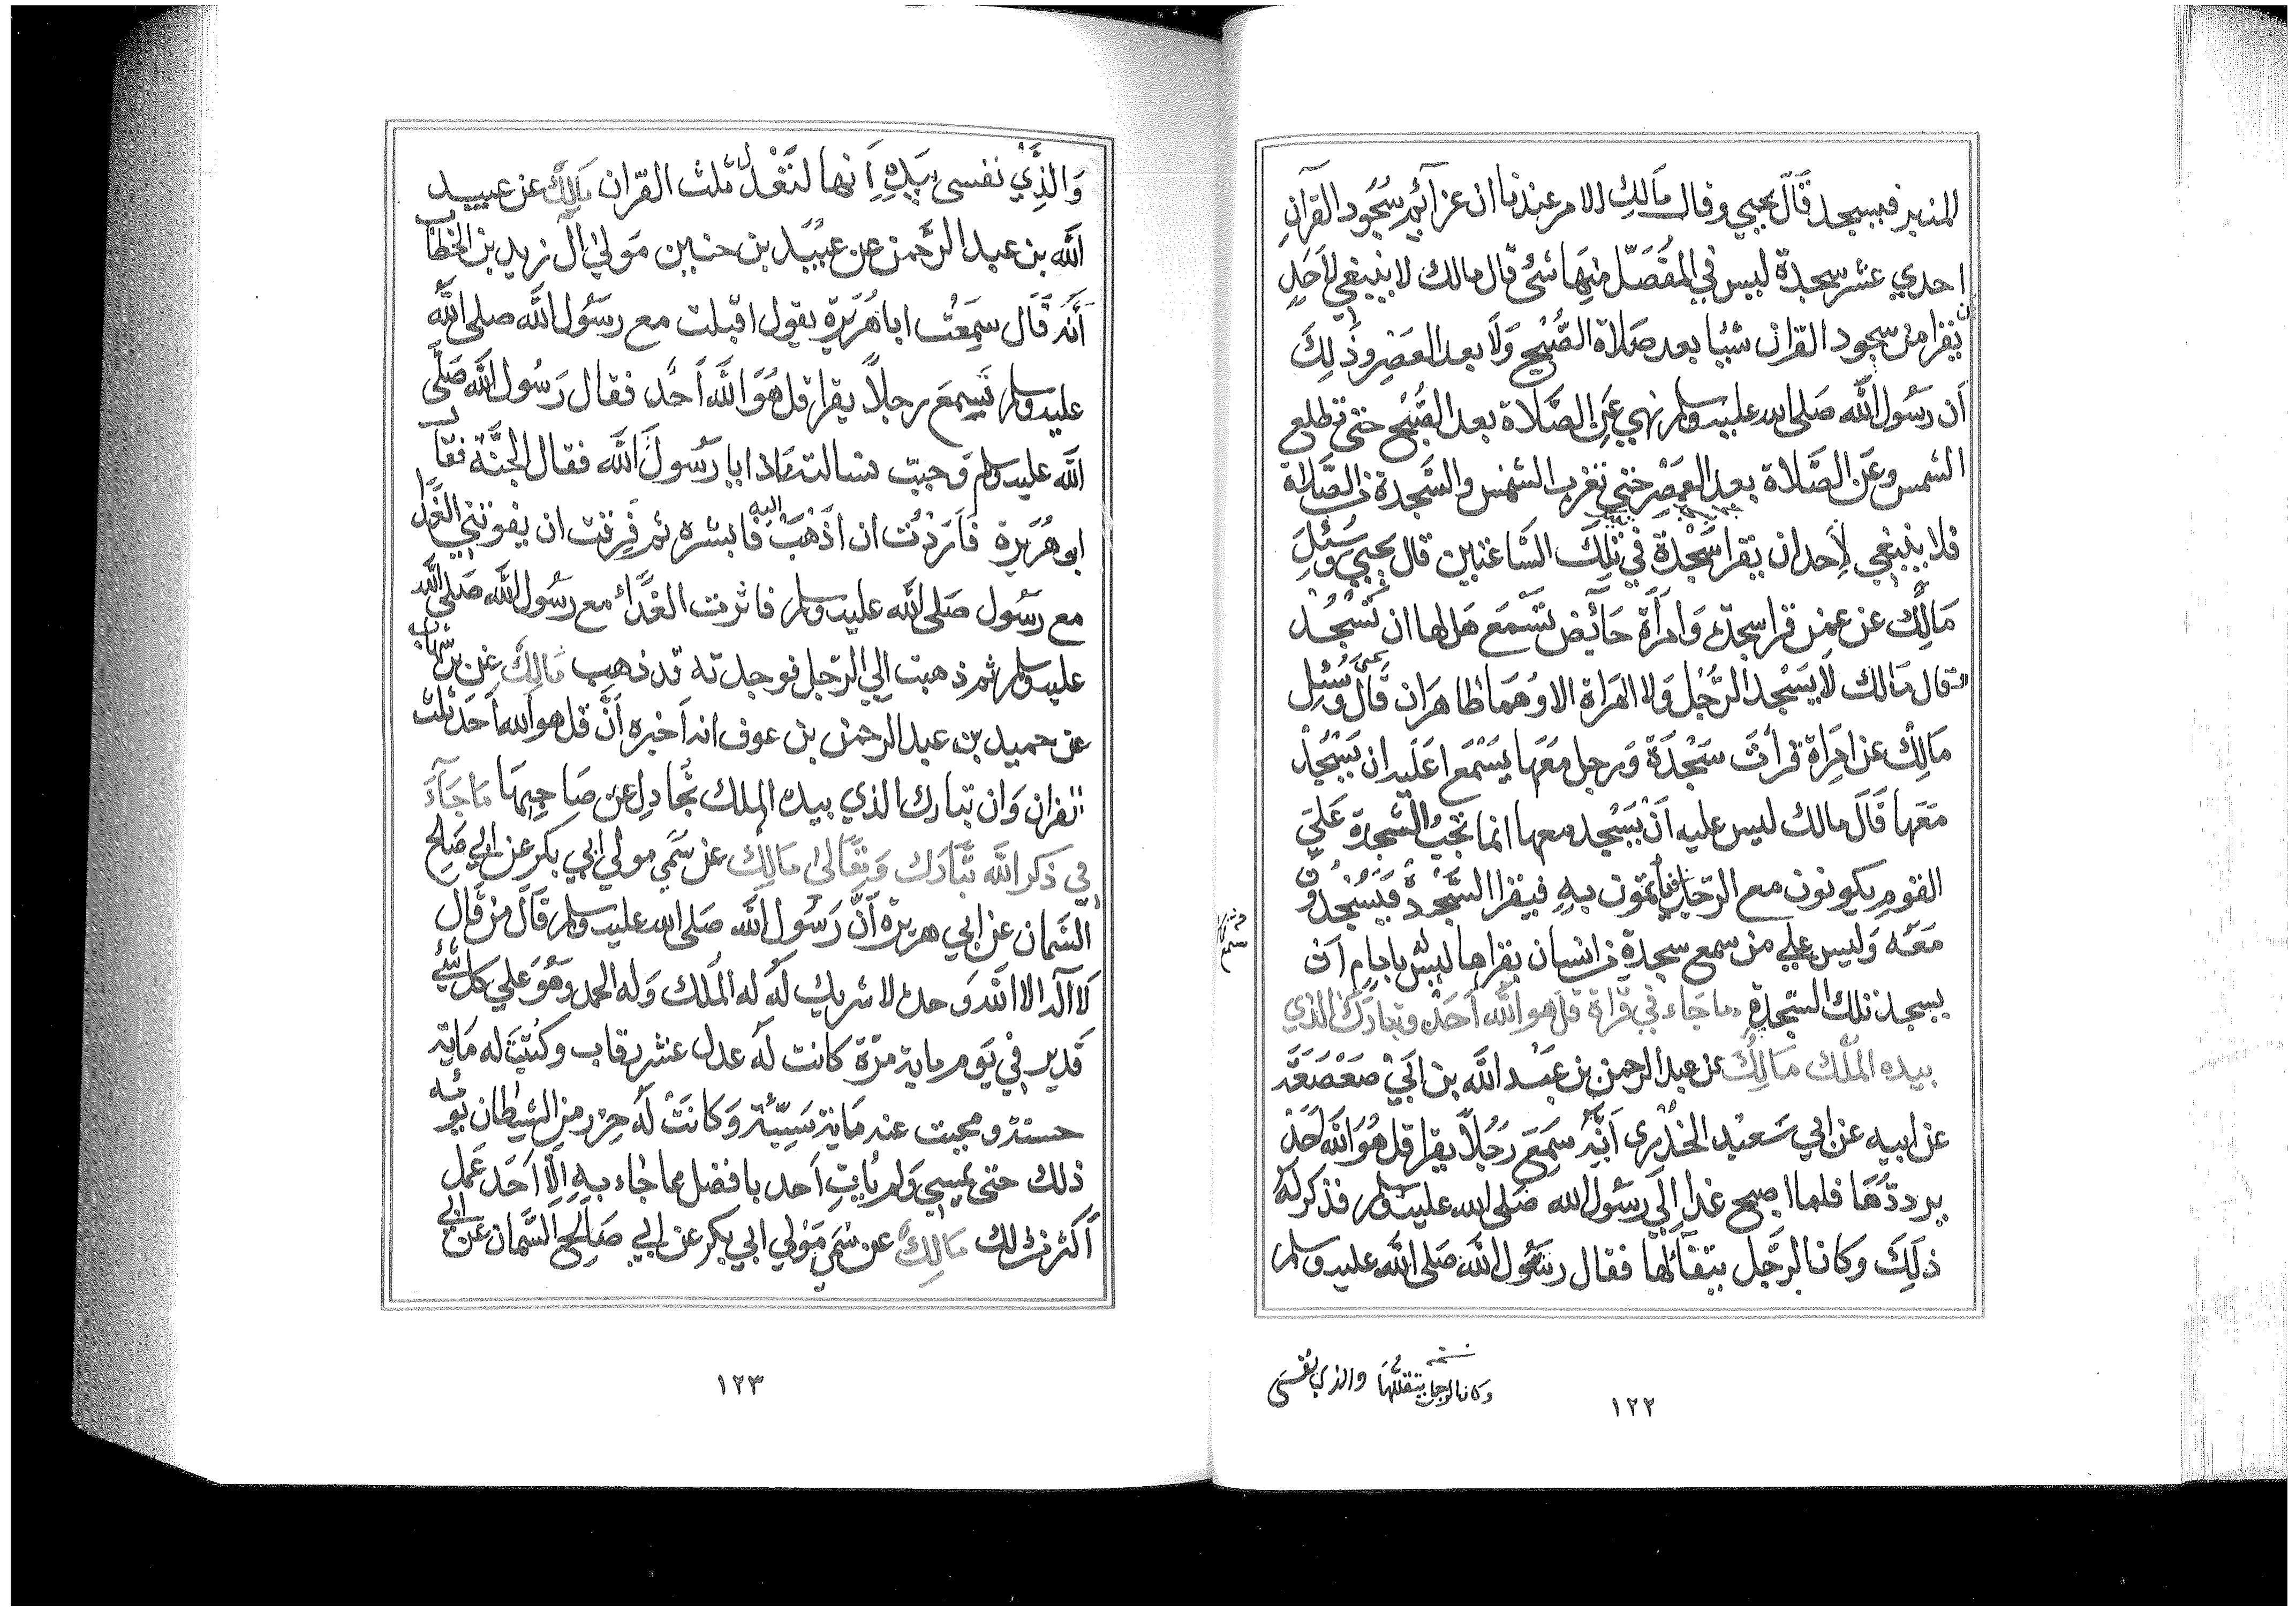 المنبر فيسجد قَالَ يحيي وقال مَالِك الامر عندنا ان عزآئم سُجُود القرآنِ
احدي عشر سجدة ليس في المفَصّل مِنهَا شئ قال مالك لا ينبغي لاَحَدٍ
ان يقرا من سجود القران شيا بعد صَلاة الصُّبح وَلَا بعد العَصْر وذَلِكَ
أن رسُول الله صَلى الله عليه وسلم نهي عَنِ الصَّلاة بعد الصُّبْح حتى تطلع
الشمس وعَن الصَّلاة بعد العَصْر حتي تغرب الشمس والسَّجدة من الصَّلاة
فلا ينبغي لاِحد ان يقرا سَجْدَة في تِلكَ السَّاعَتين قال يحيي وَسُئِلَ
مَالِك عن عمن قرا سجدة وَامرَأَة حَآئِض تَسْمَع هَل لها ان تَسْجُد
قال مَالك لَا يَسْجد الرَّجُل وَلا المراة الا وَهمَا طاهرَان قَالَ يحيى وَسُئِل
مَالِك عن امرَاة قرأتْ سَجْدَة وَرجل مَعَهَا يَسْمَع اعَلَيه ان يَسْجُدَ
مَعَهَا قَالَ مالك ليس عليه أنْ يَسْجد معها انما تجبُ السَّجدة عَلَي
القومِ يكونون مع الرّجل فيأتمّون بهِ فيقرا السَّجْدَة فَيَسْجُدُونَ
مَعَه وَليس علي من سمع سجدة من انسان يقراها ليسَ له بامامٍ اَن
يسجد تلك السّجدة ما جَاء في قراة قل هو الله أحَد وتبارَك الذي
بيده المُلك مَالِك عن عبد الرحمن بن عَبْد الله بن اَبيْ صَعْصَعَة
عن ابيه عن ابي سَعيْد الخُدْرى أنّهُ سَمِعَ رَجُلاً يقرا قل هُوَ الله اَحَد
يرددّهَا فلما اصبح غدا اِلَي رسُول الله صَلى الله عليه وسلم فذكر لَهُ
ذَلِكَ وكَانّ الرَّجُل يتقآلهَا فقال رسُول الله صَلى الله عليه وسلم
وكان الرجل يتقلَّلُها
والذي نفسى
١٢٢
وَالذِيْ نفسى بيَدِهِ اَنها لتَعْدل ثلث القران مَالِك عن عبيد
الله بن عبد الرَّحمن عن عبُيَد بن حنين مَولي آل زيد بن الخطاب
أنَّه قَال سَمِعْت ابا هُرَيرة يقول اقبلت مع رسُول الله صلى الله
عليه وسلم فسَمِعَ رجلاً يقرا قل هُوَ الله أحَد فقال رَسُول الله صَلّى
الله عليه وسلم وَجبت فسالته مَاذا يا رسُولَ الله فقال الجنَّة فقال
ابو هُرَيرة فَاَرَدْت ان اَذْهَبْ اليه فابشره ثم فَرِقت ان يفوتني الغَدَا
مع رسُول صَلى الله عليه وسلم فاثرت الغَدَاء مع رسُول الله صَلى الله
عليه وسلم ثم ذهبت اِلي الرّجل فوجدته قد ذهب مَالِك عَن بن شهاب
عن حميد بن عبد الرحمن بن عوف انه اَخبره أنَّ قل هو الله أحَد ثلث
القران وَان تبارك الذي بيده الملك تُجادِل عن صَاحِبهَا مَا جَآءَ
في ذكر الله تَبَارَك وَتعَالى مَالِك عن سُمَي مولي ابي بكر عن ابي صَالِح
السَّمان عن ابي هريرة أنَّ رَسُول الله صَلى الله عليه وسلم قَالَ من قَال
لَا اله الا الله وَحده لا شريك لَهُ له المُلك وَله الحمد وهُوَ علي كل شئ
قَدير في يَوم ماية مرّة كانت لَه عدل عشر رقاب وكُتبَت له مَاية
حسنة و محيت عنه مَاية سَيّئة وَكانَتْ لَه حِرز من الشيطان يومه
ذلك حتى يمسي وَلم يَأتِ أحد بافضل مما جَاء به اِلّا اَحَد عَمل
أكثر من ذلك مَالِك عن سُمَي مَوْلي ابي بكر عن ابي صَالِح السَّمان عَن ابي
١٢٣